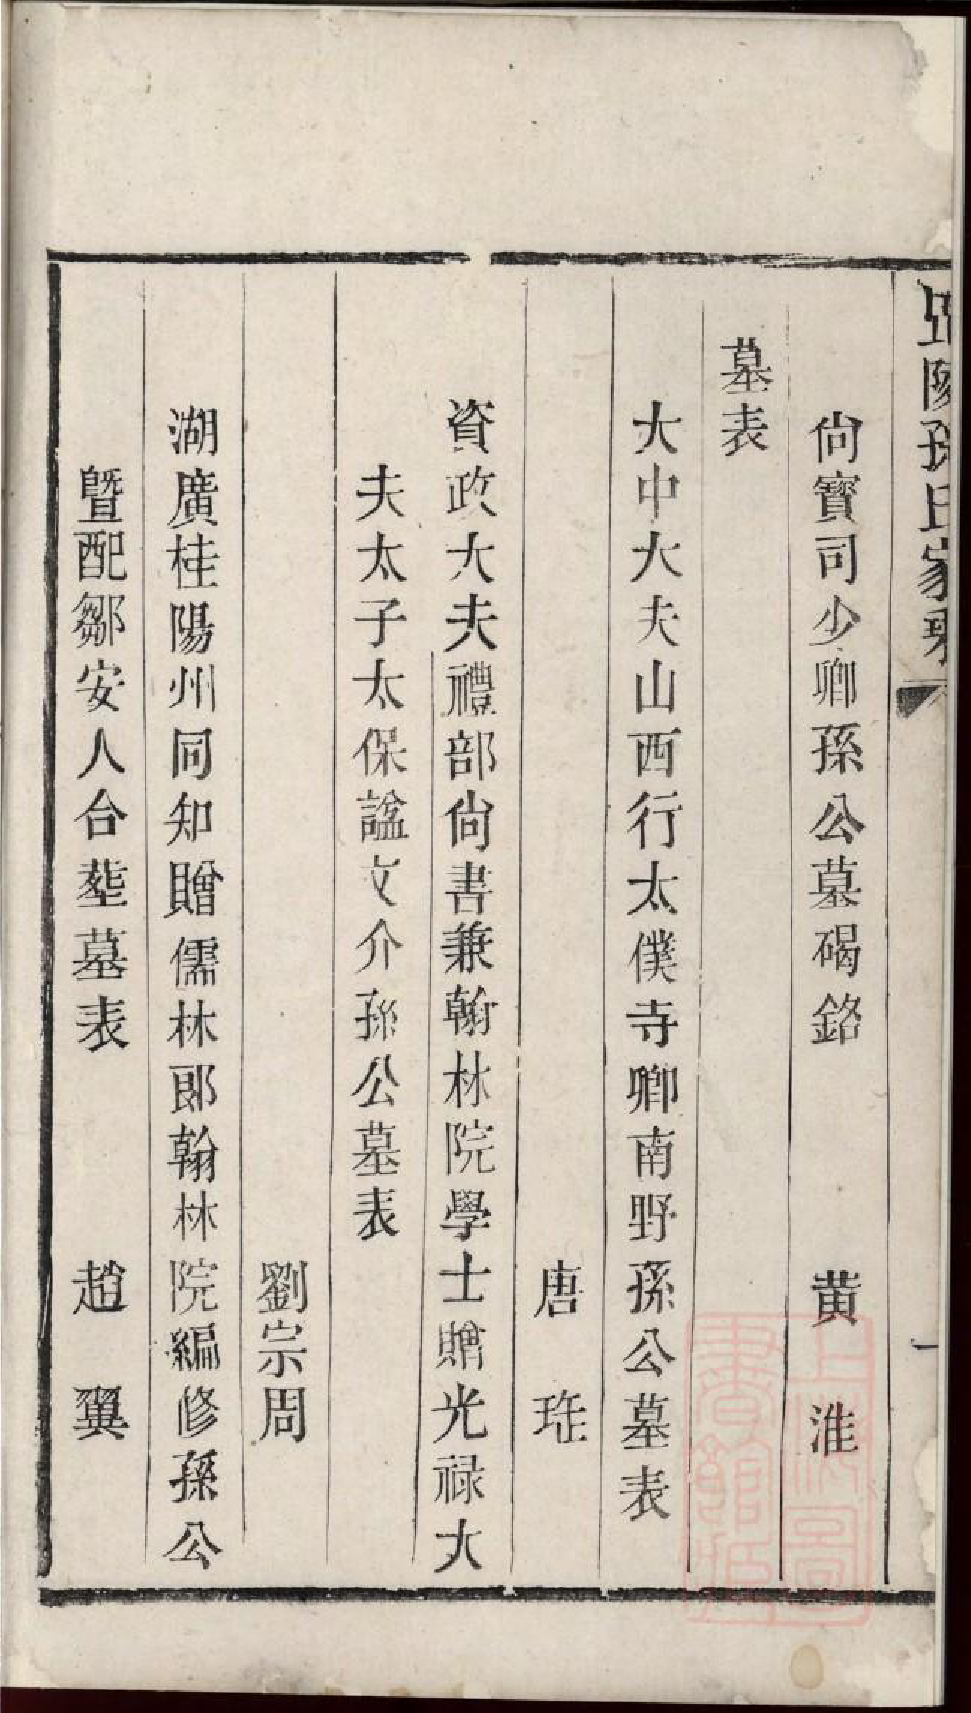 毘陵孫氏家乘
尙寶司少卿孫公墓碣銘 黄淮
墓表
大中大夫山西行太僕寺卿南野孫公墓表
唐
資政大夫禮部尙書兼翰林院學士贈光禄大
夫太子太保諡文介孫公墓表
劉宗周
湖廣桂陽州同知贈儒林郎翰林院編修孫公
曁配鄒安人合塟墓表 趙翼